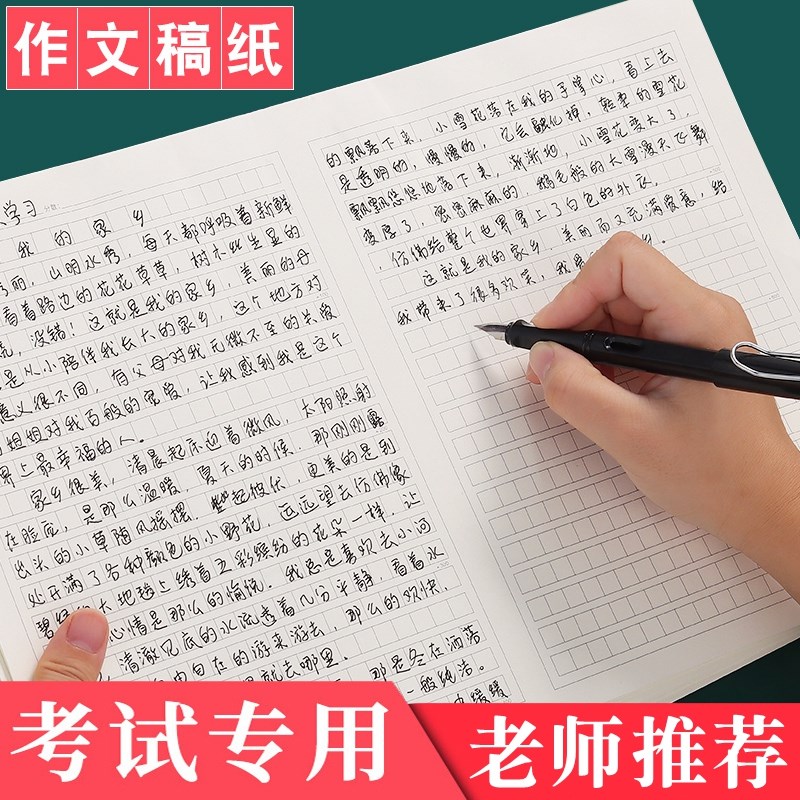 作文稿纸
学习
我的家乡
秀丽，山明水秀，每天都呼吸着新鲜
看着路边的花花草草，树木
没错！这就是我的家乡，美丽的母
是从小陪伴我长大的家乡，这个地方对
意义很不同，有父母对我无微不至的关爱
姐姐对我百般的宠爱，让我感到我是这个
界上最幸福的人。
家乡很美，清晨起床迎着微风，太阳照射
在脸庞，是那么温暖，夏天的时候，那刚刚露
出头的小草随风摇摆，起彼伏，更美的是到
处开满了各种颜色的小野花，远远望去仿佛像
碧绿 大地毯上绣着五彩缤纷的花朵一样，让
心情是那么的愉悦。我总是喜欢去小河
清澈见底的水流透着几分平静，看着水
自由自在的游来游去，那么的欢快，
就去哪里。
那是冬在洒落
一般纯洁。
缓缓
的飘落下来，小雪花落在我的手掌心，看上去
是透明的，慢慢的，它会融化掉，轻柔的雪花
飘飘悠悠地落下来，渐渐地，小雪花变大了，
变厚了，密密麻麻的，鹅毛般的大雪漫天飞舞
，仿佛给整个世界穿上了白色的外衣。
这就是我的家乡，美丽而又充满爱意，给
我带来了很多欢笑，我 乡。
考试专用
老师推荐